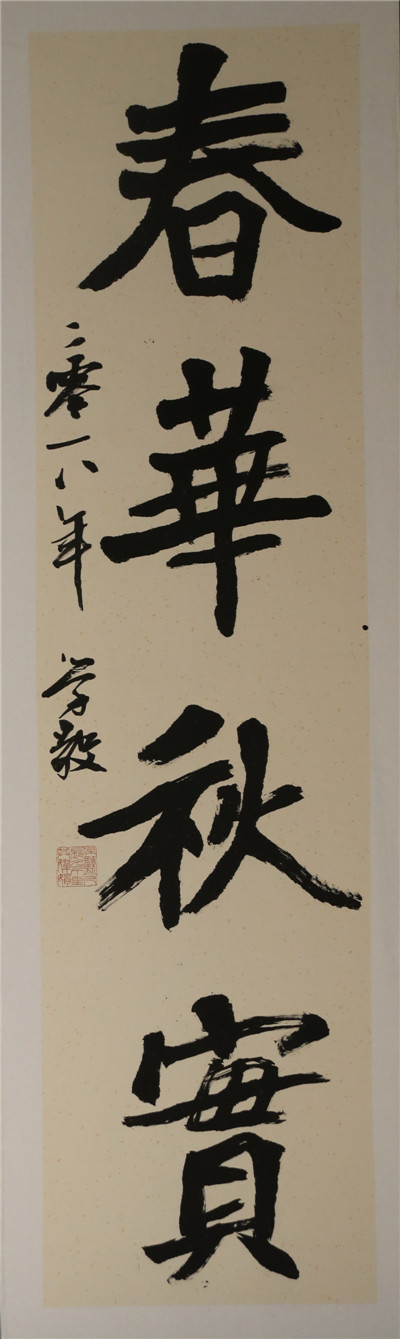 春華秋實
二零一八年 学毅